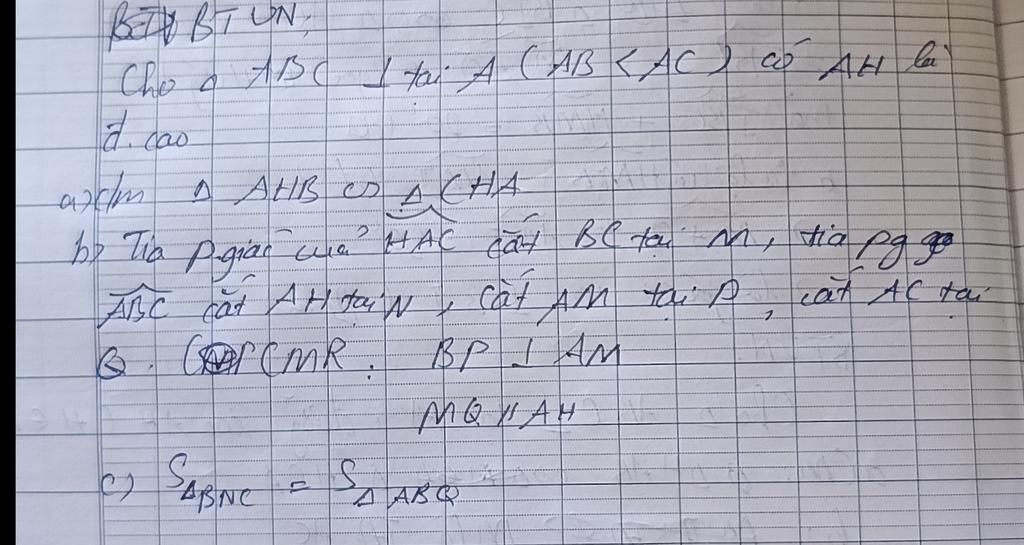 BTVN:
Cho Δ ABC ⊥ tại A ( AB < AC ) có AH là
đ. cao
a) c/m Δ AHB ∽ Δ CHA
b) Tia p.giác của HAC cắt BC tại M, tia pg
ABC cắt AH tại N, cắt AM tại P, cắt AC tại
Q. CMR: BP ⊥ AM
MQ // AH
c) SΔBNC = SΔABQ